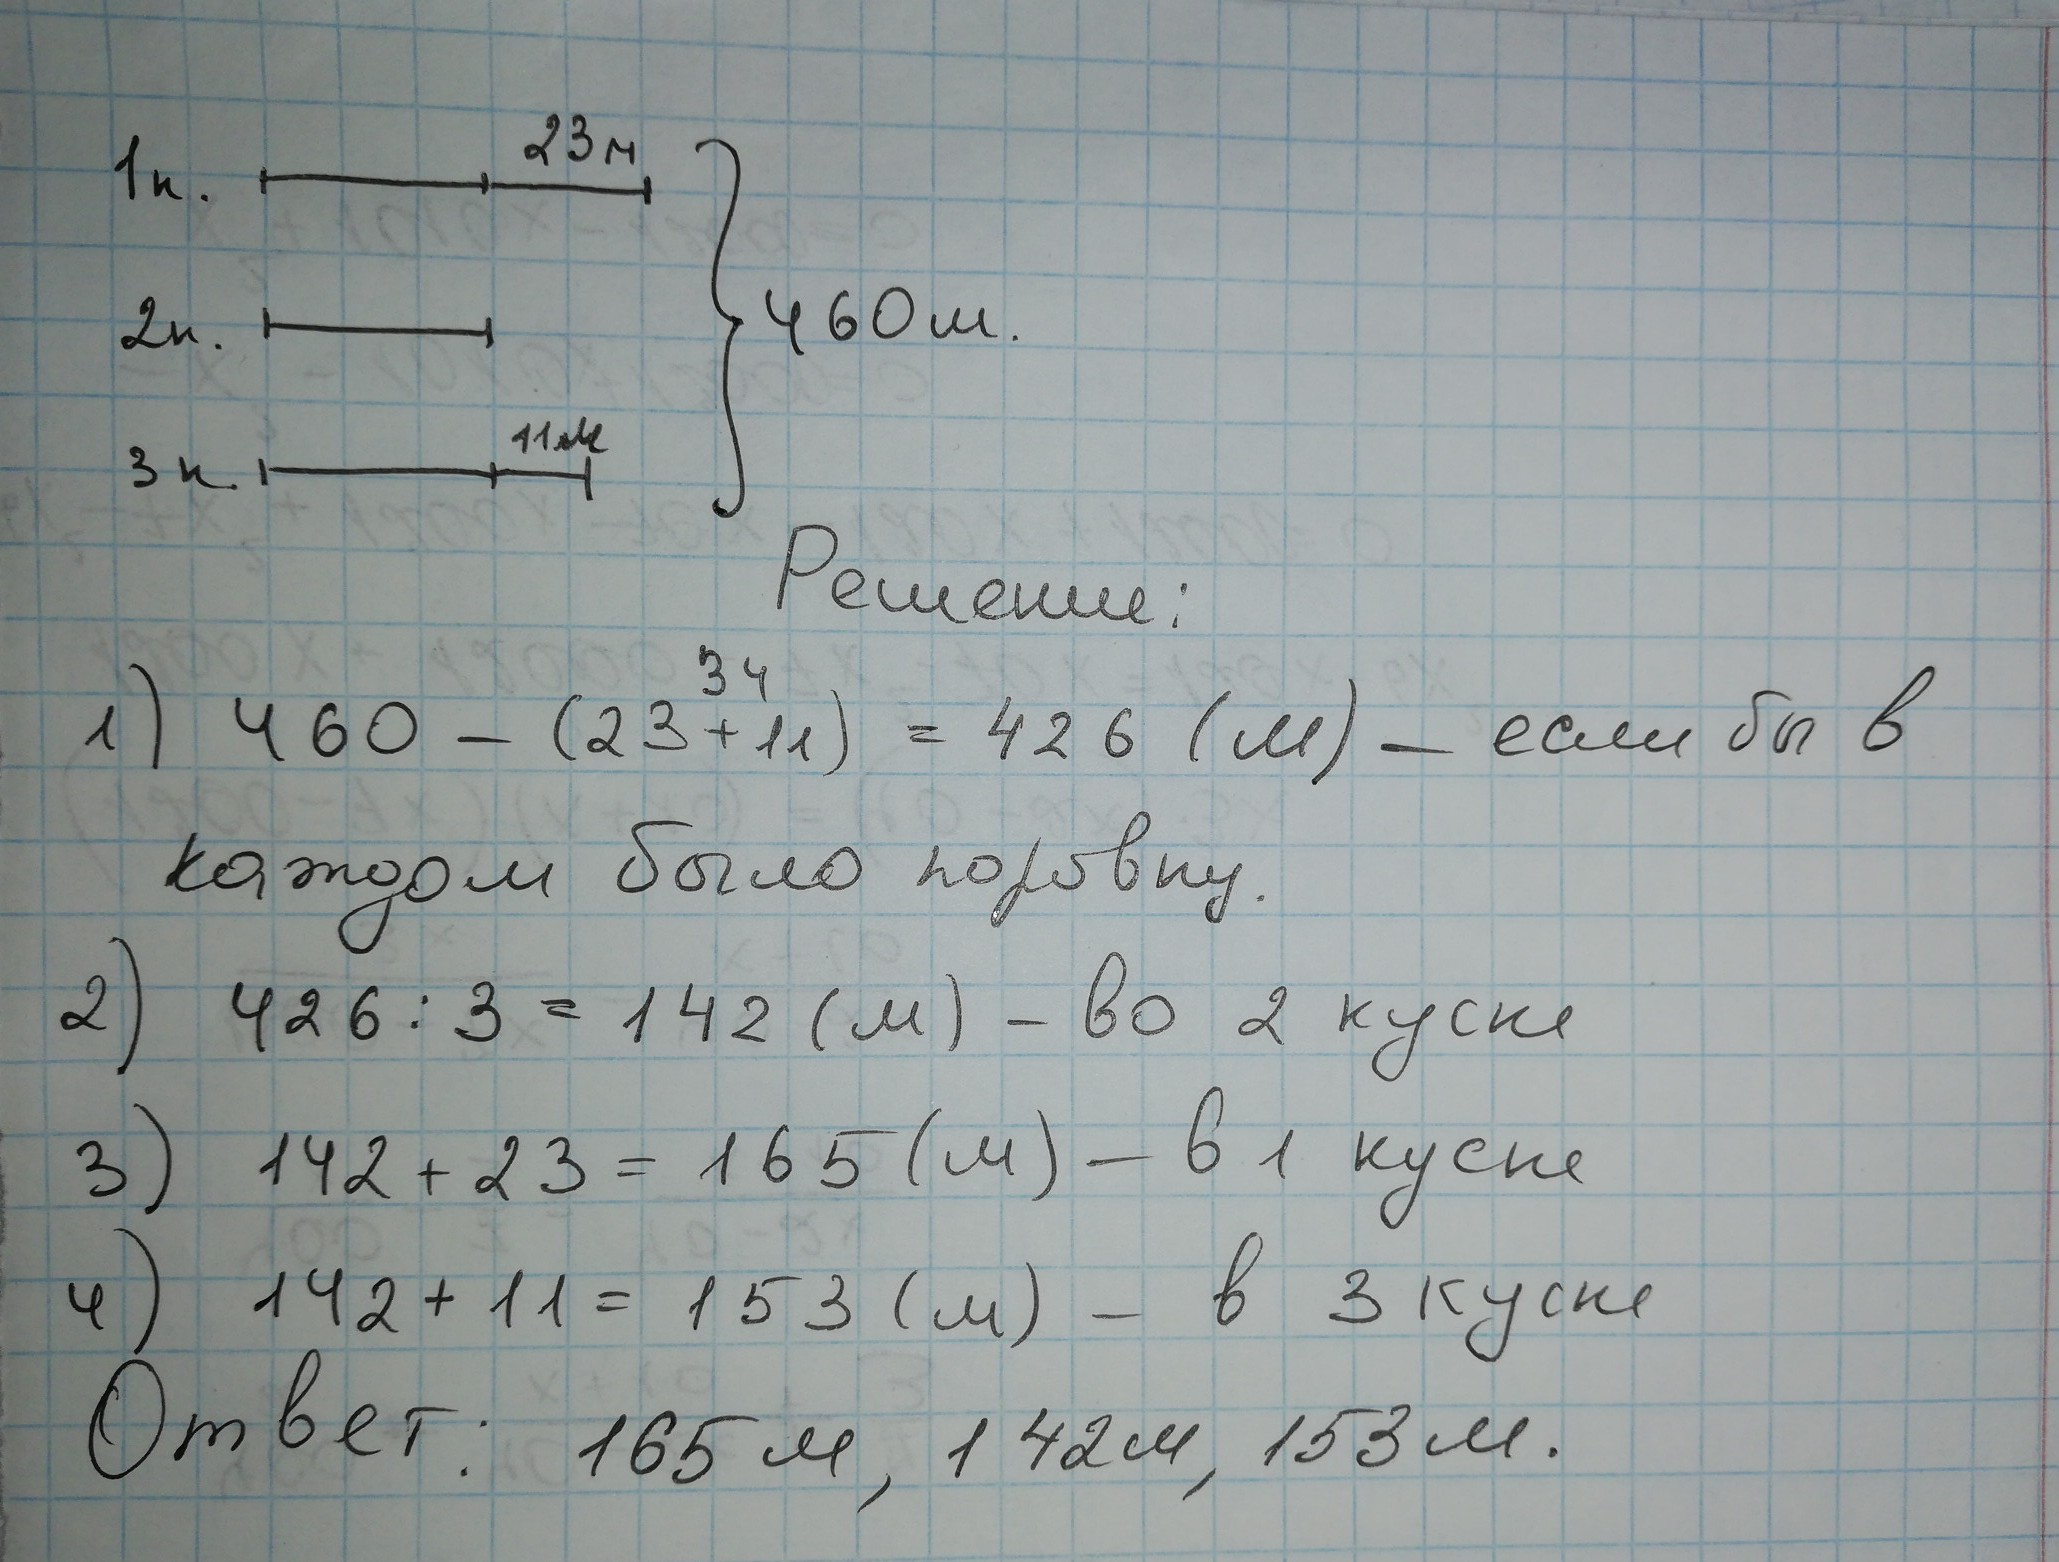 1к. 23м
2к. 460м.
3к. 11м
Решение:
34
1) 460 - (23+11) = 426 (м) - если бы в
каждом было поровну.
2) 426 : 3 = 142 (м) - во 2 куске
3) 142 + 23 = 165 (м) - в 1 куске
4) 142 + 11 = 153 (м) - в 3 куске
Ответ: 165 м, 142м, 153м.